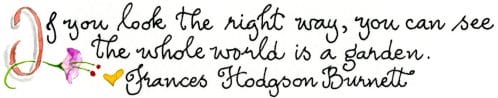 If you look the right way, you can see
the whole world is a garden.
Frances Hodgson Burnett